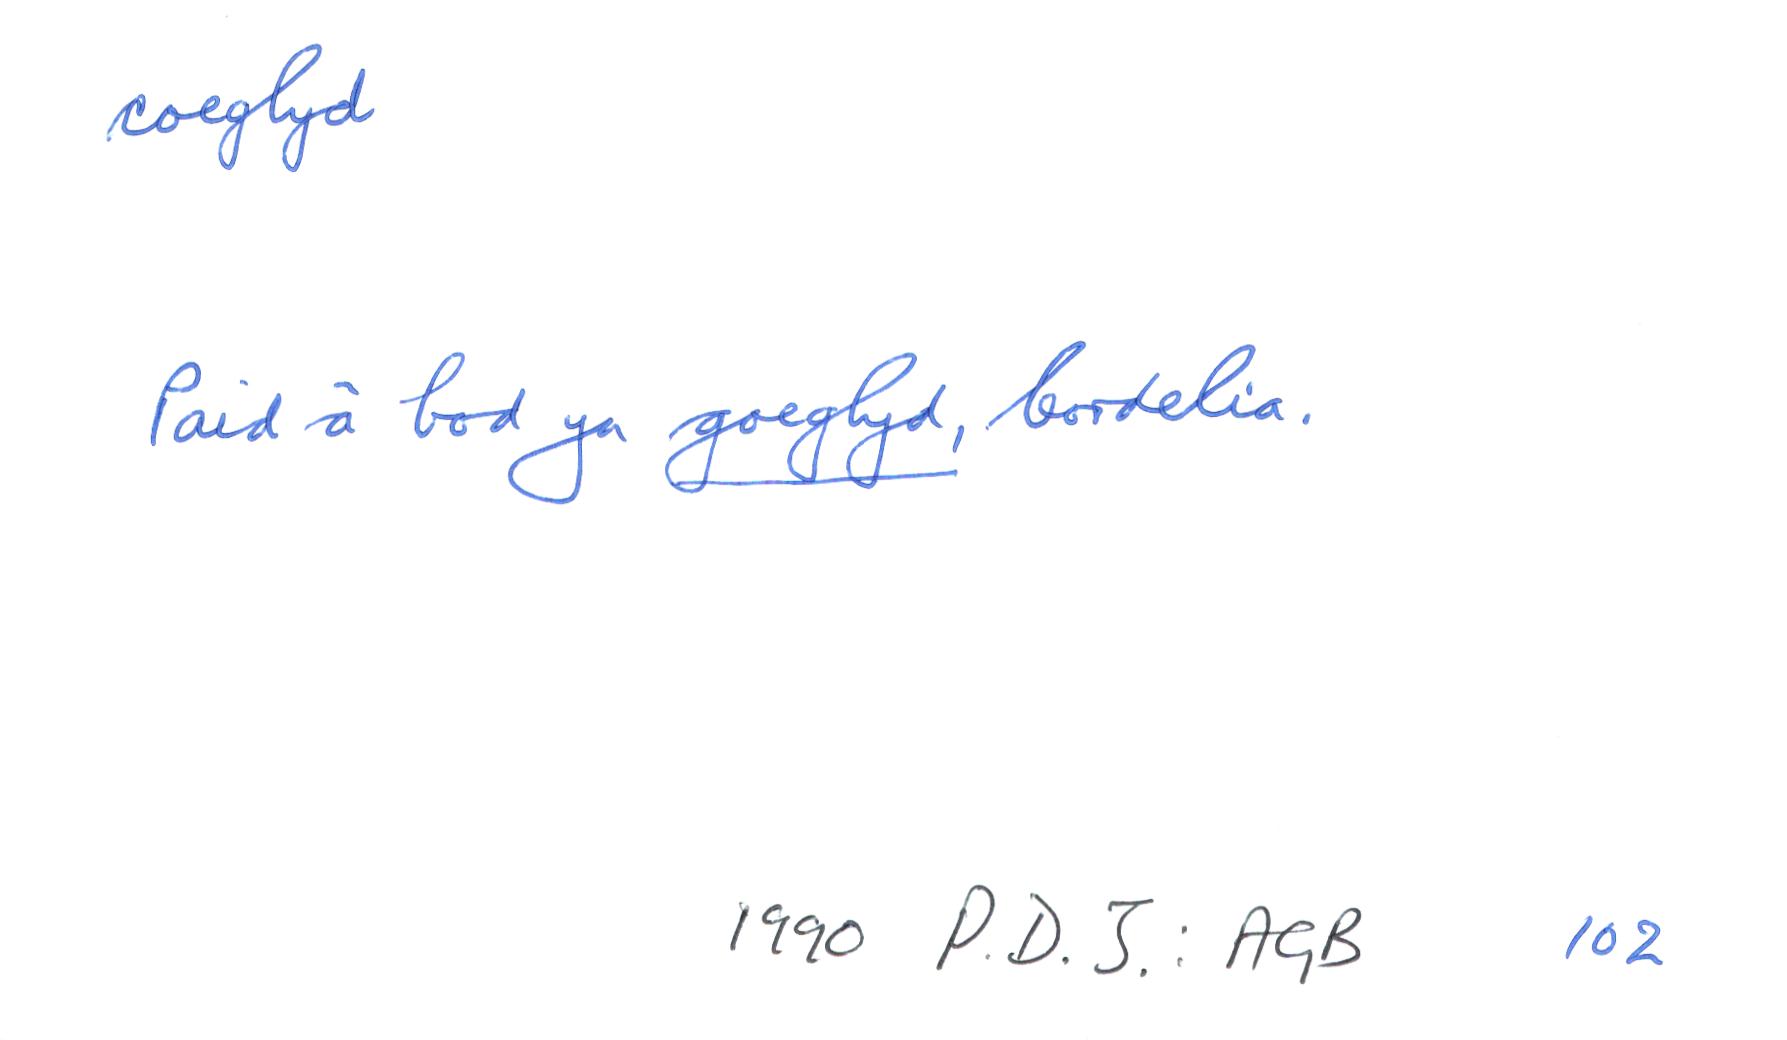 coeglyd
Paid â bod yn goeglyd, Cordelia.
1990 P.D.J.: AGB 102